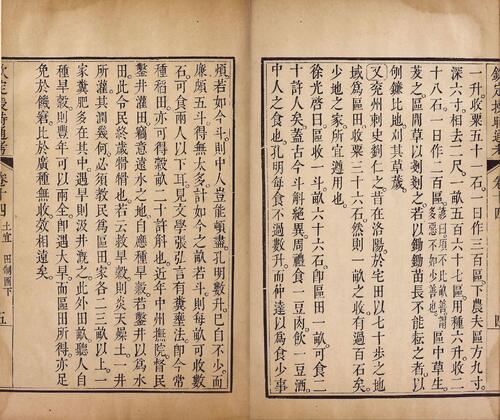 一升收粟五十一石。一日作三百區。下農夫區方九寸
深六寸相去二尺。一畝五百六十七區。用種六升收二
十八石。一日作二百區。諺曰頃不比畝善謂
多惡不如少善也。區中草生
茇之。區間草以剗剗之。若以鋤鋤苗長不能耘之者以
刎鎌比地刈其草薉。
又兗州刺史劉仁之。昔在洛陽於宅田以七十步之地
域爲區田收粟三十六石。然則一畝之收有過百石矣
少地之家所宜遵用也。
徐光啓曰區收一斗。畝六十六石。卽區田一畝可食二
十許人矣。蓋古今斗絕異。周禮食一豆肉飲一豆酒
中人之食也。孔明每食不過數升。而仲達以爲食少事
煩。若如今斗。則中人豈能頓盡。孔明數升。已自不少。而
廉頗五斗。得無太多。計如今之畝若斗。則每畝可收數
石。可食兩人以下耳。見文學張弘言有糞壅法。卽今常
種稻田。亦可得穀畝二十許斛也。近年中州撫院督民
鑿井灌田。竊意遠水之地。自應種旱穀。若鑿井以爲水
田。此令民終歲搰搰也。若云救旱穀。則炎天燥土一井
所灌其潤幾何。必須教民爲區田。家各二三畝以上。一
家糞肥多在其中。遇旱則汲井溉之。此外田畝聽人自
種旱穀。則豐年可以兩全。卽遇大旱。而區田所得亦足
免於饑窘。比於廣種無收。效相遠矣。
欽定授時通考 卷十四 土宜 田制圖下 五